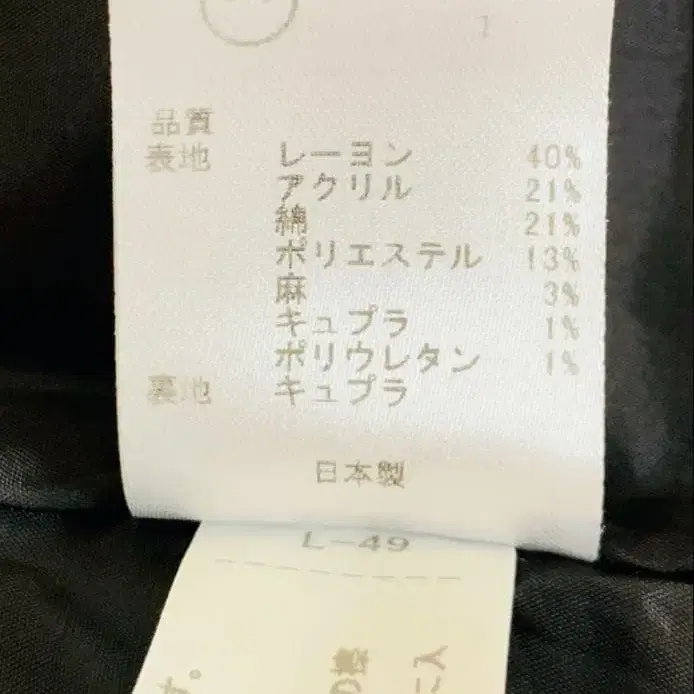 品質
表地 レーヨン 40%
アクリル 21%
綿 21%
ポリエステル 13%
麻 3%
キュプラ 1%
ポリウレタン 1%
裏地 キュプラ
日本製
L-49
す。
の機
に入